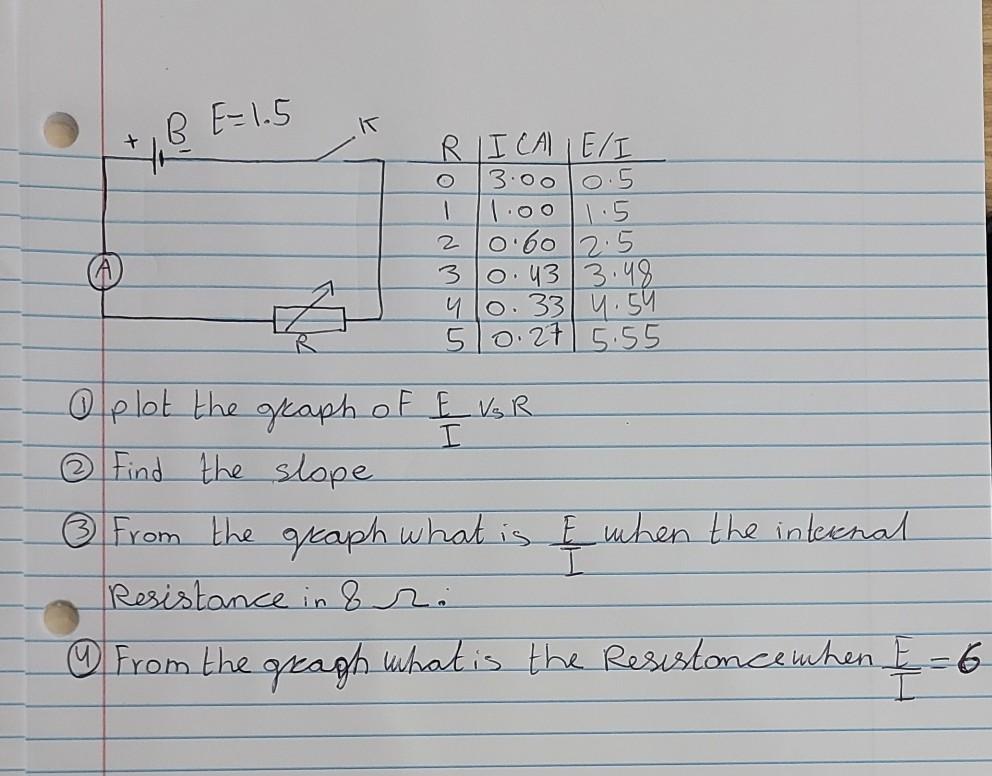 + B E=1.5 K
A
R
R I (A) E/I
0 3.00 0.5
1 1.00 1.5
2 0.60 2.5
3 0.43 3.48
4 0.33 4.54
5 0.27 5.55
① plot the graph of E/I Vs R
② Find the slope
③ From the graph what is E/I when the internal
Resistance in 8 Ω.
④ From the gragh what is the Resistance when E/I = 6